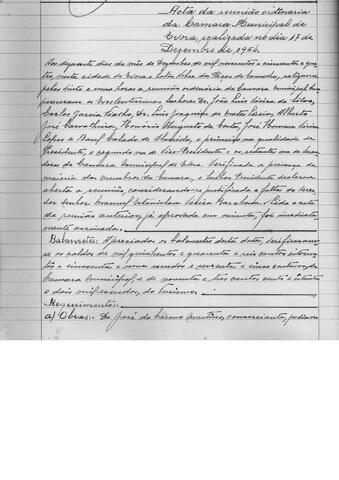 Acta da reunião ordinaria
da Camara Municipal de
Evora, realizada no dia 17 de
Dezembro de 1954.
Aos dezassete dias do mês de Dezembro de mil novecentos e cincoenta e qua-
tro, nesta cidade de Evora e Salas Sobra dos Paços do Concelho, realizou-se
pelas vinte e uma horas a reunião ordinária da Camara Municipal. Com-
pareceram os Excelentissimos Senhores Dr. João Luis Vieira da Silva,
Carlos Garcia Fialho, Dr. Luis Joaquim de Matos, Alberto
José Carvalheira, Honório Augusto da Costa, José Homem
Lopes e Raul Calado de Almeida, o primeiro na qualidade de
Presidente, o segundo na de Vice-Presidente e os restantes na de Verea-
dores da Camara Municipal de Evora. Verificada a presença da
maioria dos membros da Camara, o Senhor Presidente declarou
aberta a reunião, considerando-se justificada a falta do Verea-
dor senhor Manuel Vieira Barahona. Lida a acta
da reunião anterior, já aprovada em minuta, foi imediata-
mente assinada.
Balancetes: Apreciados os balancetes desta data, verificaram-
se os saldos de mil quinhentos e quarenta e seis contos oitocen-
tos e cincoenta e nove escudos e noventa e cinco centavos, da
Camara Municipal, e de noventa e três contos cento e setenta
e dois mil escudos, do turismo.
Requerimentos:
a) Obras:- De José do Carmo Martins, comerciante, pedindo